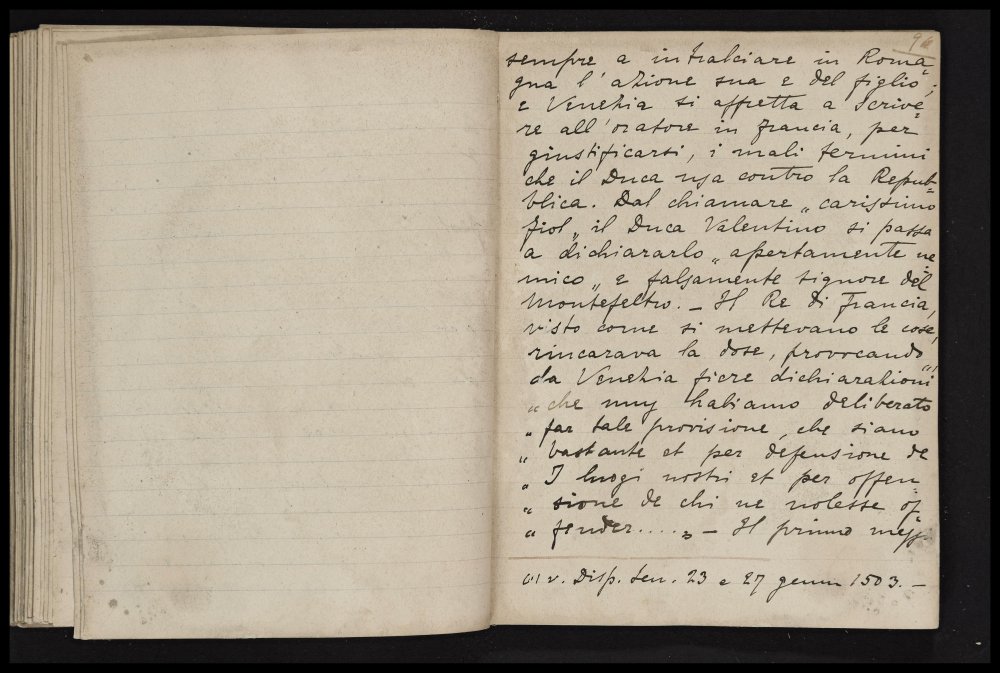 sempre a intralciare in Roma=
gna l'azione sua e del figlio;
e Venezia si affretta a scrive=
re all'oratore in Francia, per
giustificarsi, i mali termini
che il Duca usa contro la Repub=
blica. Dal chiamare „carissimo
fiol„ il Duca Valentino si passa
a dichiararlo „apertamente ne=
mico„ e falsamente signore del
Montefeltro. – Il Re di Francia,
visto come si mettevano le cose,
rincarava la dose, provocando
da Venezia fiere dichiarazioni (1)
„ che nuy habiamo deliberato
„ far tale provisione, che siano
„ bastante et per defensione de
„ I luogi nostri et per offen=
„ sione de chi ne volesse of=
„ fender.....„ – Il primo mess
(1) v. Disp. Sen. 23 e 27 genn 1503. –